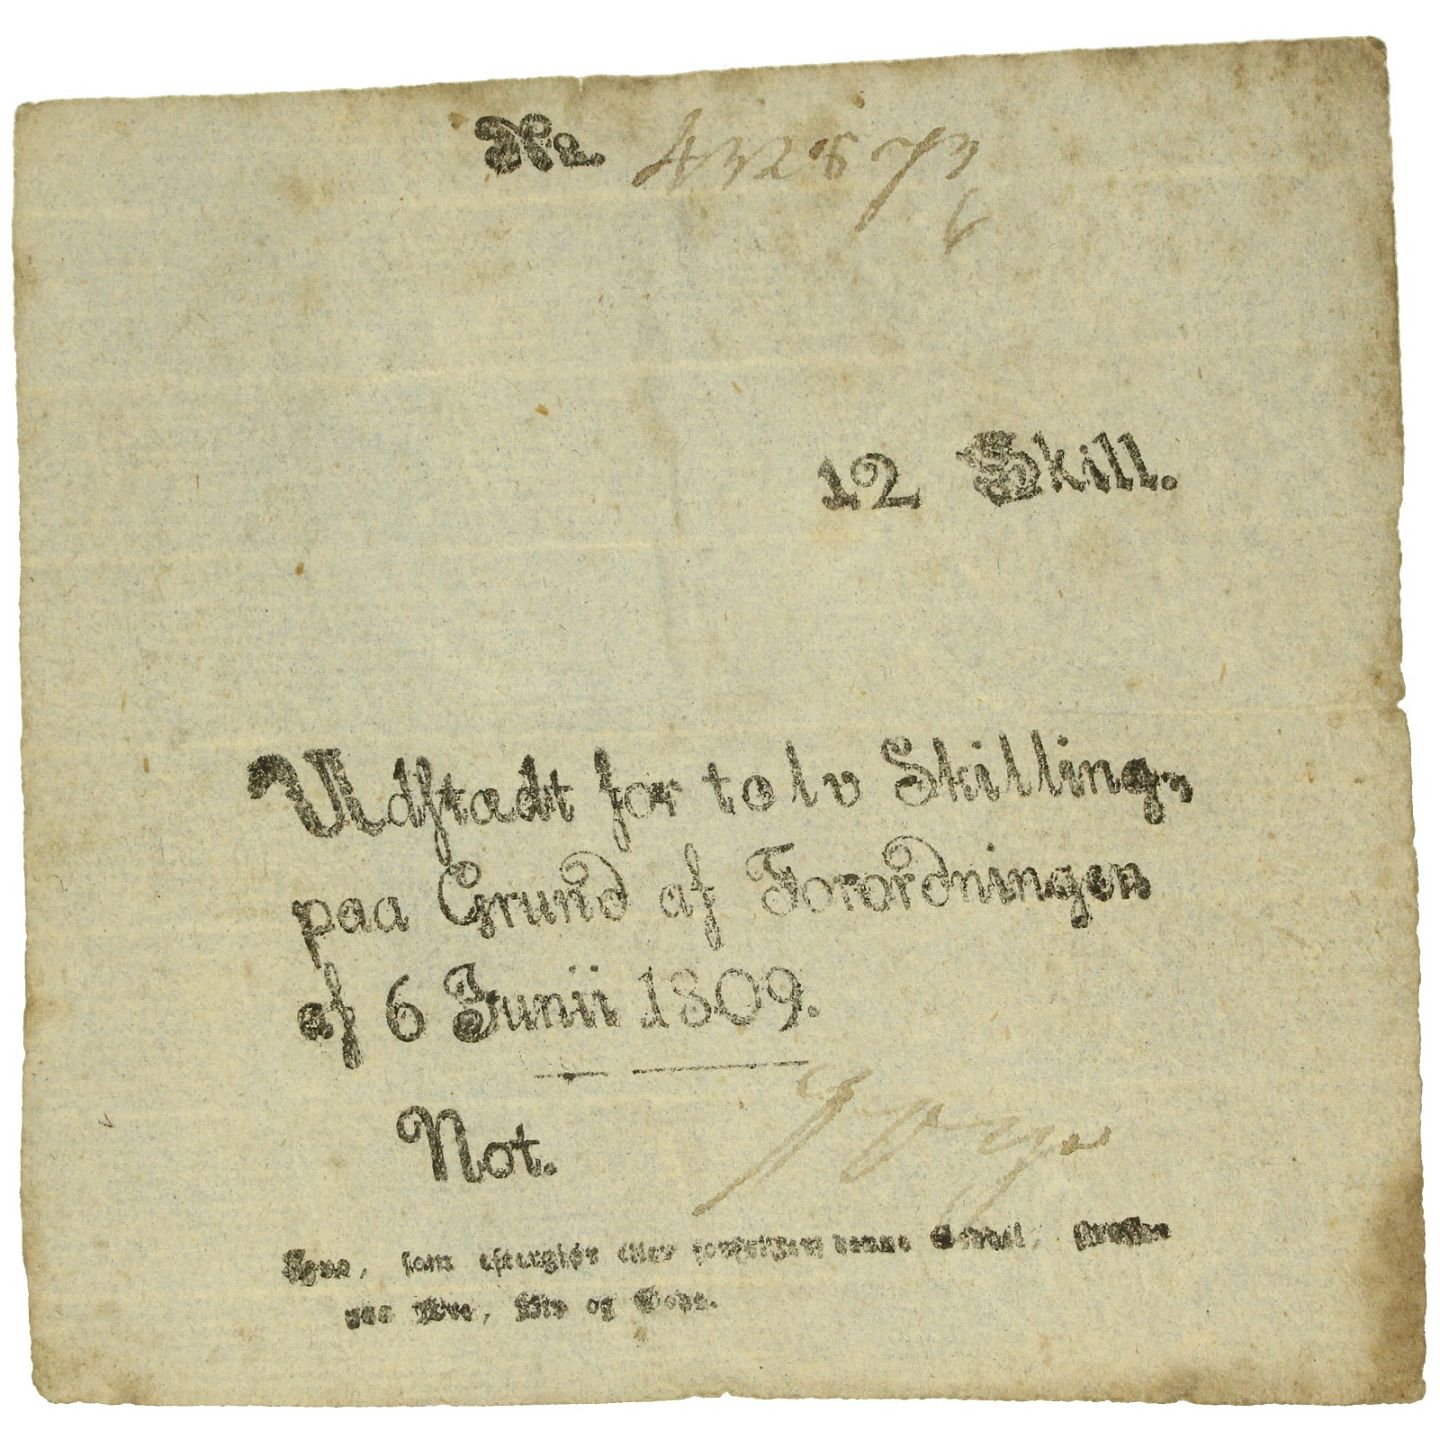 No
12 Skill.
Udstædt for tolv Skilling,
paa Grund af Forordningen
af 6 Junii 1809.
Not.
som eftergiør eller forfalsker denne Seddel, straffes
paa Ære, Liv og Gods.